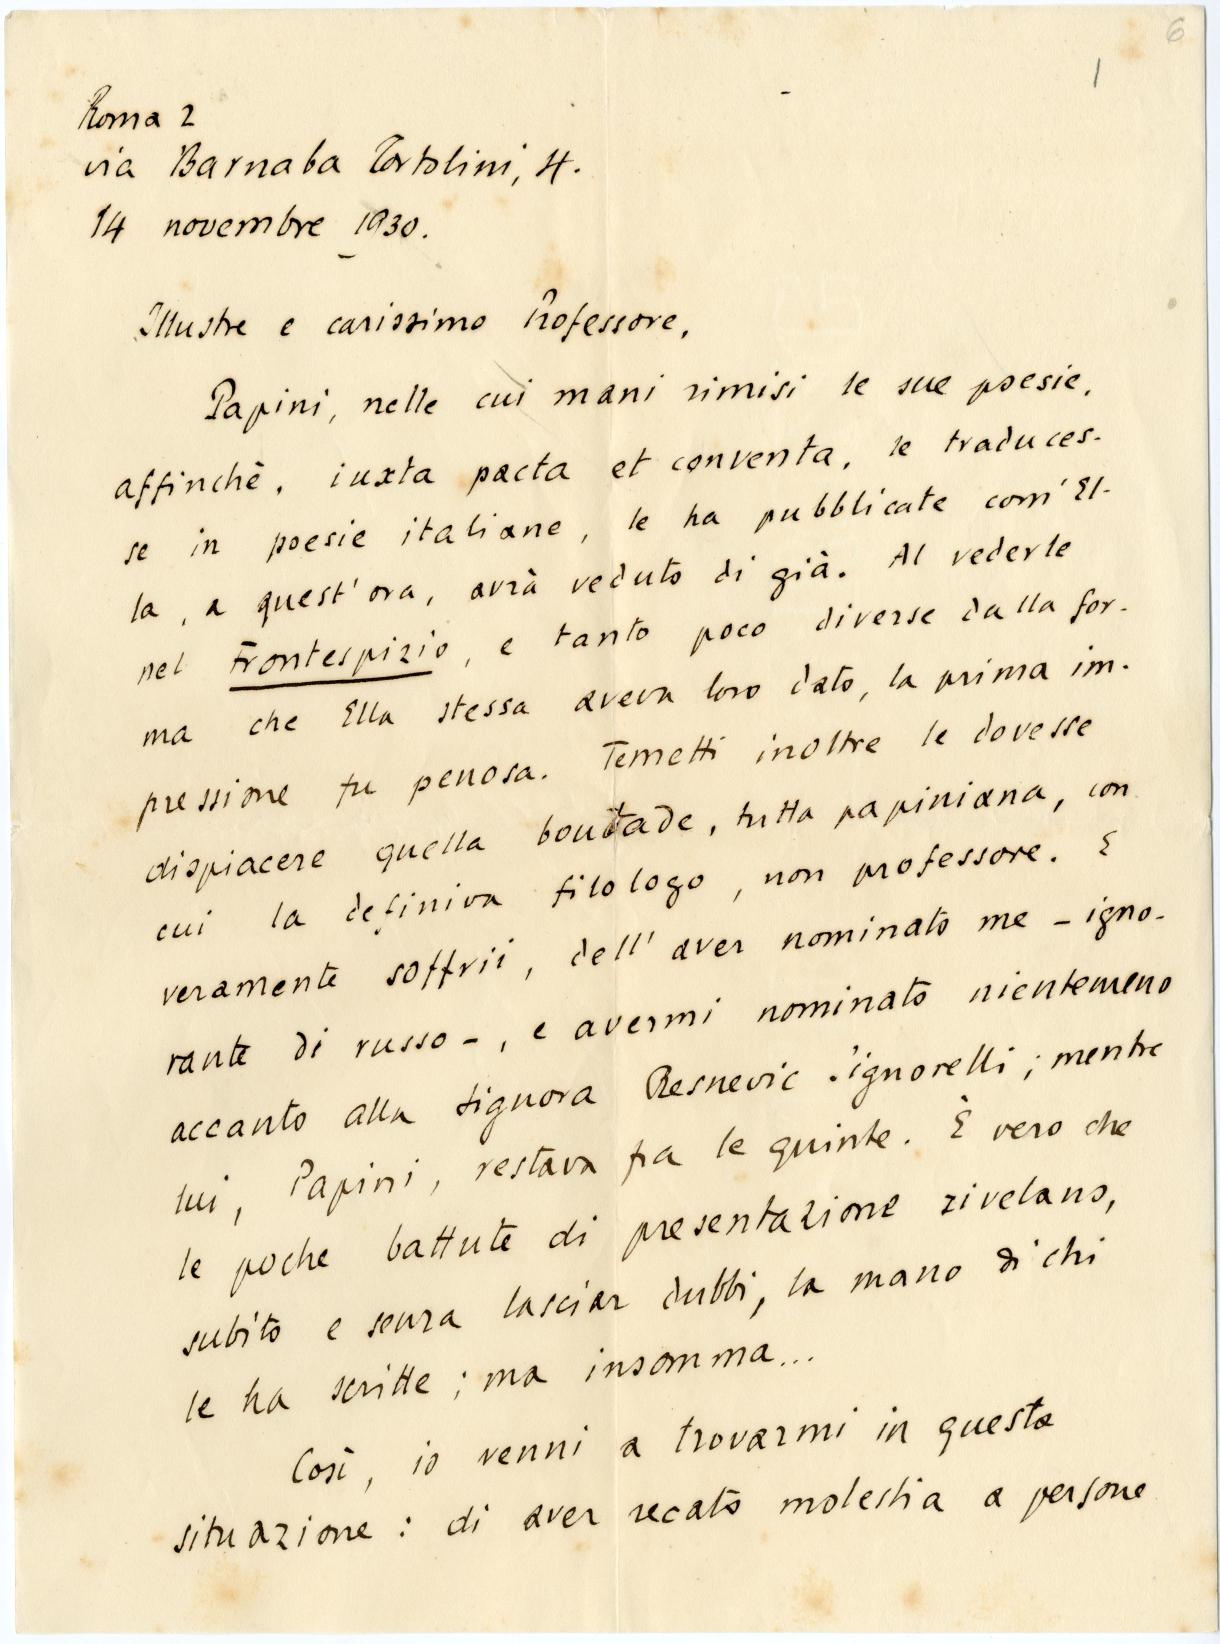 6
1
Roma 2
via Barnaba Tortolini, 4.
14 novembre 1930.
Illustre e carissimo Professore,
Papini, nelle cui mani rimisi le sue poesie,
affinchè, iuxta pacta et conventa, le traduces-
se in poesie italiane, le ha pubblicate com' El-
la, a quest' ora, avrà veduto di già. Al vederle
nel Frontespizio, e tanto poco diverse dalla for-
ma che Ella stessa aveva loro dato, la prima im-
pressione fu penosa. Temetti inoltre le dovesse
dispiacere quella boutade, tutta papiniana, con
cui la definiva filologo, non professore. E
veramente soffrii, dell' aver nominato me - igno-
rante di russo -, e avermi nominato nientemeno
accanto alla signora Resnevic Signorelli; mentre
lui, Papini, restava fra le quinte. È vero che
le poche battute di presentazione rivelano,
subito e senza lasciar dubbi, la mano di chi
le ha scritte; ma insomma...
Così, io venni a trovarmi in questa
situazione: di aver recato molestia a persone